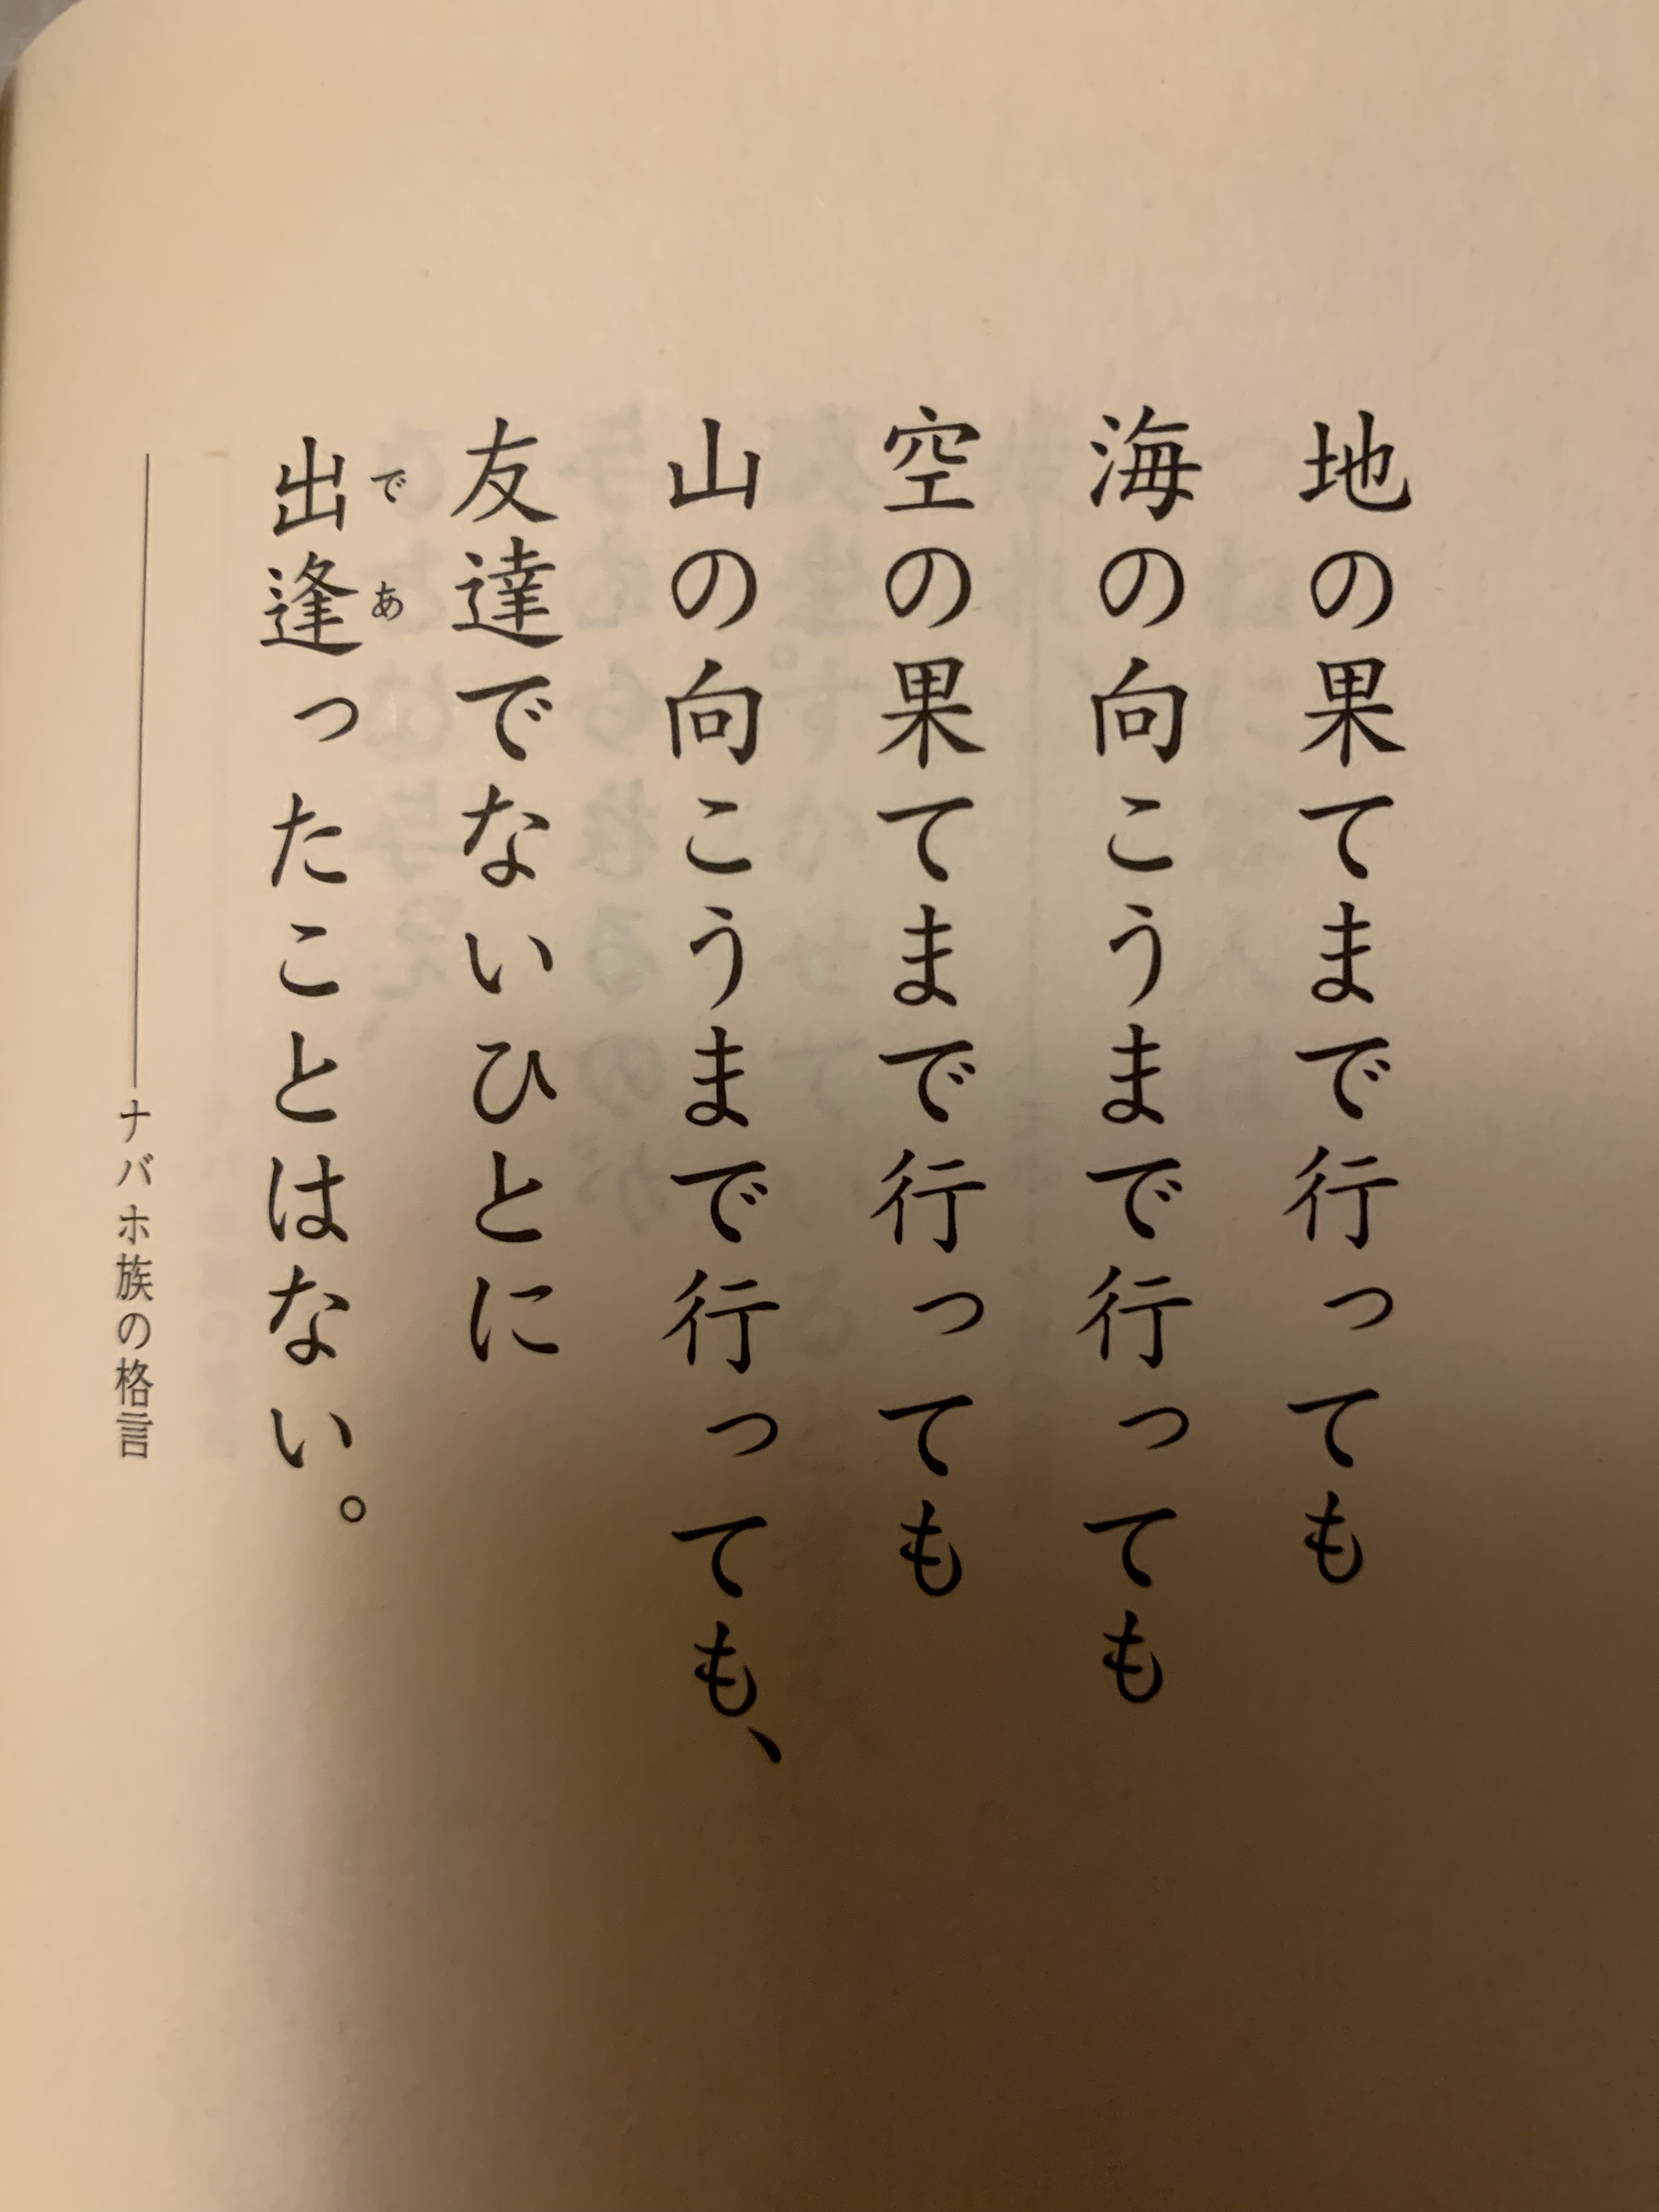 地の果てまで行っても
海の向こうまで行っても
空の果てまで行っても
山の向こうまで行っても、
友達でないひとに
出逢ったことはない。
であ
――ナバホ族の格言